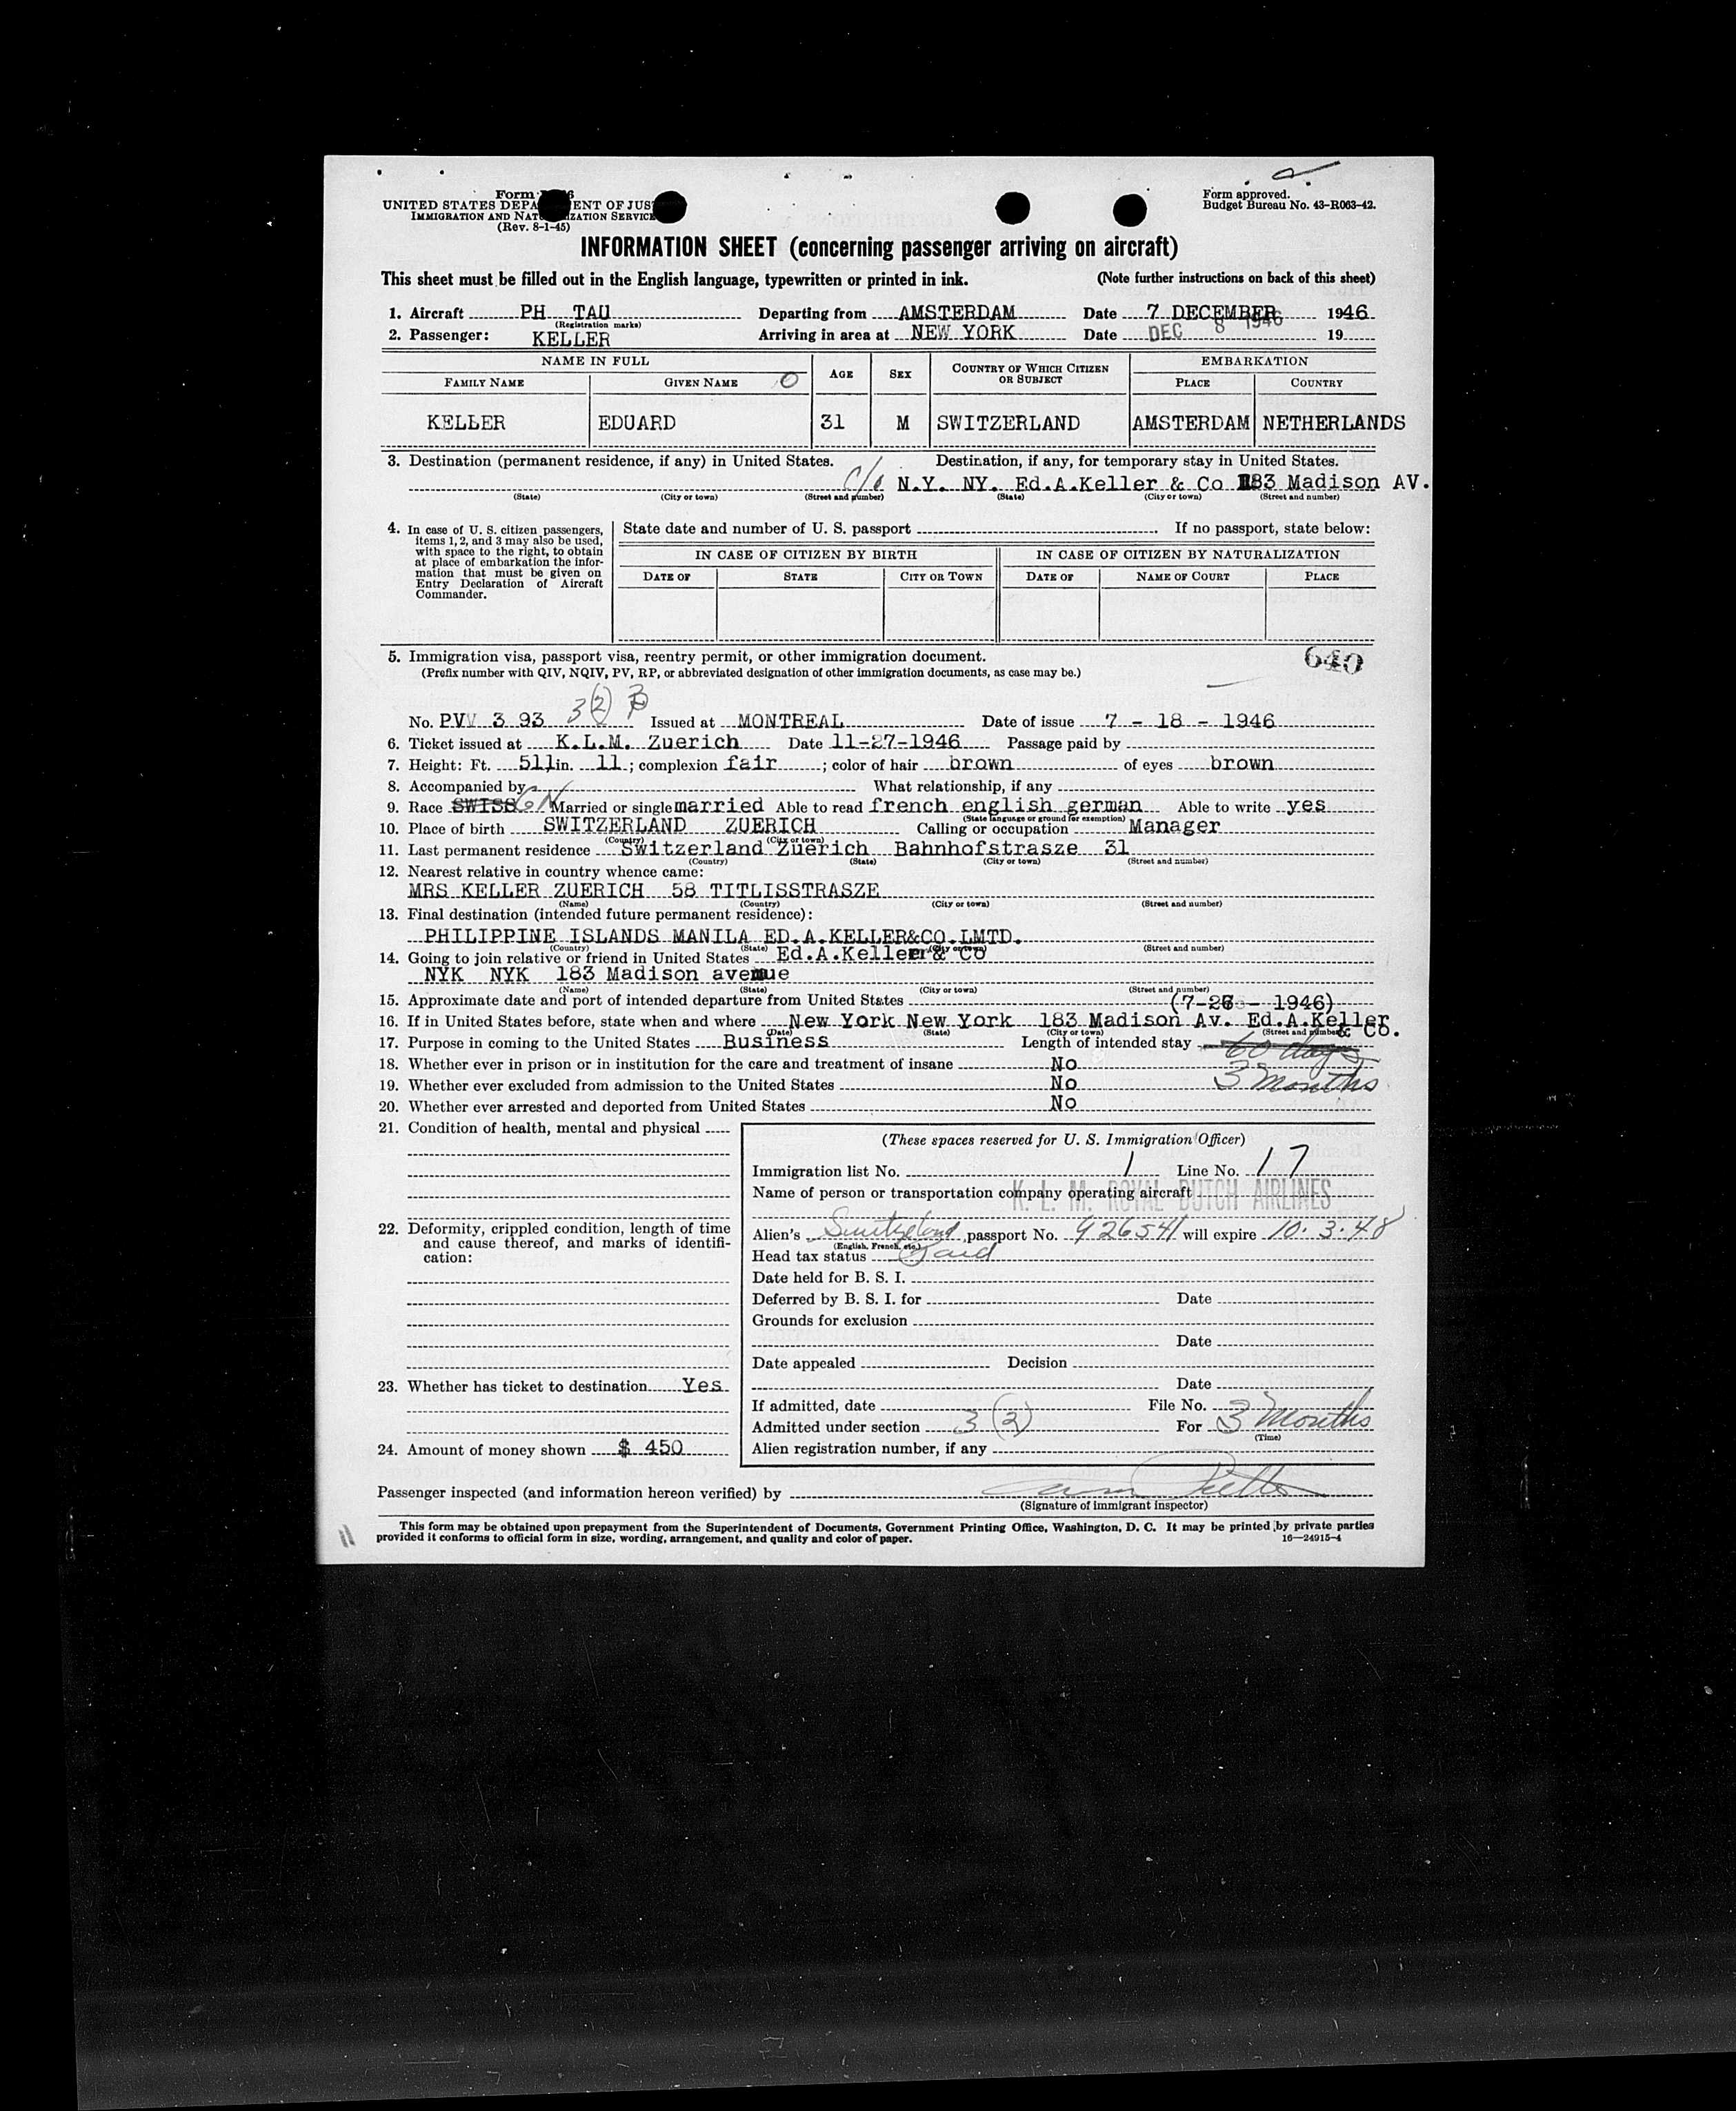 Form
UNITED STATES DEPA ENT OF JUS
IMMIGRATION AND NAT IZATION SERVICE
(Rev. 8-1-45)
Form approved.
Budget Bureau No. 43-R063-42.
INFORMATION SHEET (concerning passenger arriving on aircraft)
This sheet must be filled out in the English language, typewritten or printed in ink. (Note further instructions on back of this sheet)
1. Aircraft PH TAU Departing from AMSTERDAM Date 7 DECEMBER 1946
(Registration marks)
2. Passenger: KELLER Arriving in area at NEW YORK Date DEC 8 1946 19
NAME IN FULL AGE SEX COUNTRY OF WHICH CITIZEN OR SUBJECT EMBARKATION
FAMILY NAME GIVEN NAME PLACE COUNTRY
KELLER EDUARD 31 M SWITZERLAND AMSTERDAM NETHERLANDS
3. Destination (permanent residence, if any) in United States. Destination, if any, for temporary stay in United States.
c/o N.Y. NY. Ed.A.Keller & Co 183 Madison AV.
(State) (City or town) (Street and number) (State) (City or town) (Street and number)
4. In case of U. S. citizen passengers, items 1, 2, and 3 may also be used, with space to the right, to obtain at place of embarkation the information that must be given on Entry Declaration of Aircraft Commander.
State date and number of U. S. passport If no passport, state below:
IN CASE OF CITIZEN BY BIRTH IN CASE OF CITIZEN BY NATURALIZATION
DATE OF STATE CITY OR TOWN DATE OF NAME OF COURT PLACE
5. Immigration visa, passport visa, reentry permit, or other immigration document. 640
(Prefix number with QIV, NQIV, PV, RP, or abbreviated designation of other immigration documents, as case may be.)
No. PVV 3 93 3(2) Issued at MONTREAL Date of issue 7 - 18 - 1946
6. Ticket issued at K.L.M. Zuerich Date 11-27-1946 Passage paid by
7. Height: Ft. 511in. 11; complexion fair; color of hair brown of eyes brown
8. Accompanied by What relationship, if any
9. Race SWISS Married or single married Able to read french english german Able to write yes
(State language or ground for exemption)
10. Place of birth SWITZERLAND ZUERICH Calling or occupation Manager
(Country) (City or town)
11. Last permanent residence Switzerland Zuerich Bahnhofstrasze 31
(Country) (State) (City or town) (Street and number)
12. Nearest relative in country whence came:
MRS KELLER ZUERICH 58 TITLISSTRASZE
(Name) (Country) (City or town) (Street and number)
13. Final destination (intended future permanent residence):
PHILIPPINE ISLANDS MANILA ED.A.KELLER&CO.LMTD.
(Country) (State) (City or town) (Street and number)
14. Going to join relative or friend in United States Ed.A.Keller& Co
NYK NYK 183 Madison avenue
(Name) (State) (City or town) (Street and number)
15. Approximate date and port of intended departure from United States
(7-26 - 1946)
16. If in United States before, state when and where New York New York 183 Madison Av. Ed.A.Keller & Co.
(Date) (State) (City or town) (Street and number)
17. Purpose in coming to the United States Business Length of intended stay 60 days
18. Whether ever in prison or in institution for the care and treatment of insane No
3 months
19. Whether ever excluded from admission to the United States No
20. Whether ever arrested and deported from United States No
21. Condition of health, mental and physical
(These spaces reserved for U. S. Immigration Officer)
Immigration list No. 1 Line No. 17
Name of person or transportation company operating aircraft
K. L. M. ROYAL DUTCH AIRLINES
22. Deformity, crippled condition, length of time and cause thereof, and marks of identification:
Alien's Switzerland passport No. 926541 will expire 10.3.48
(English, French, etc.)
Head tax status Paid
Date held for B. S. I.
Deferred by B. S. I. for Date
Grounds for exclusion
Date
Date appealed Decision
23. Whether has ticket to destination Yes
Date
If admitted, date File No.
Admitted under section 3 (2) For 3 Months
(Time)
24. Amount of money shown $ 450
Alien registration number, if any
Passenger inspected (and information hereon verified) by
(Signature of immigrant inspector)
This form may be obtained upon prepayment from the Superintendent of Documents, Government Printing Office, Washington, D. C. It may be printed by private parties
provided it conforms to official form in size, wording, arrangement, and quality and color of paper. 16—24915-4